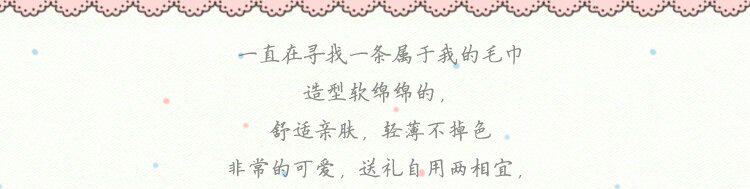 一直在寻找一条属于我的毛巾
造型软绵绵的，
舒适亲肤，轻薄不掉色
非常的可爱，送礼自用两相宜，